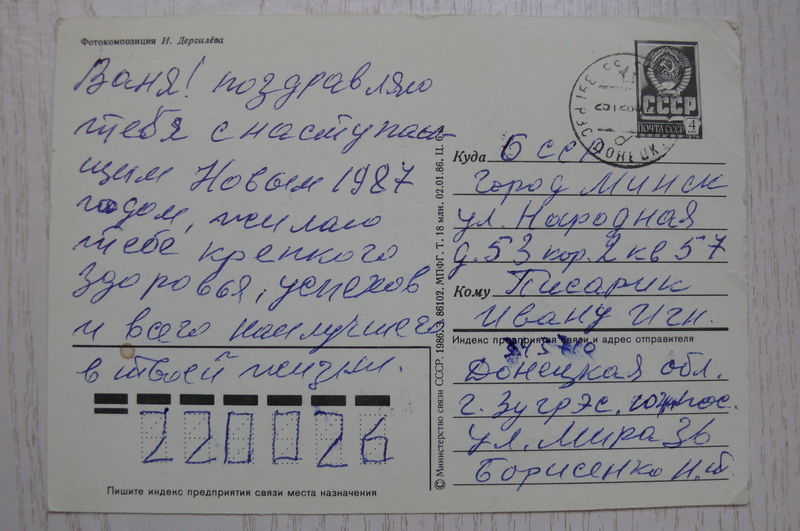 Фотокомпозиция И. Дергилёва
Ваня! поздравляю
тебя с наступаю-
щим Новым 1987
годом, жилаю
тебе крепкого
здоровья, успехов
и всего наилучшего
в твоей жизни.
220026
Пишите индекс предприятия связи места назначения
© Министерство связи СССР. 1986. З. 86102. МПФГ. Т. 18 млн. 02.01.86. Ц.
СССР
ПОЧТА СССР 4
ДОНЕЦК
Куда БССР
город Минск
ул. Народная
д. 53 кор. 2 кв 57
Кому Писарик
Ивану Игн.
Индекс предприятия связи и адрес отправителя
Донецкая обл.
г. Зугрэс,
ул. Мира 36
Борисенко